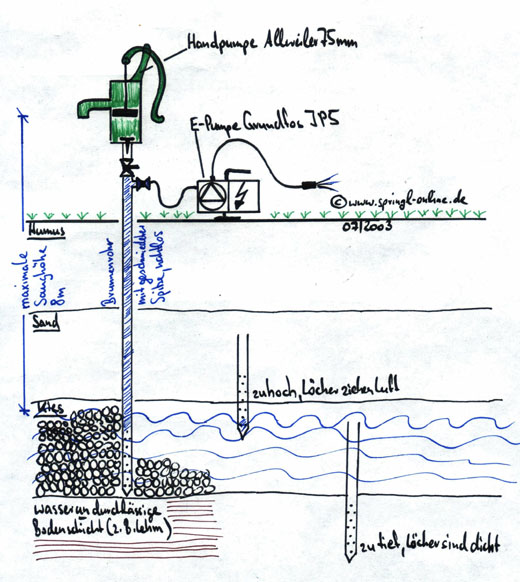 Handpumpe Allweiler 75mm
E-Pumpe Grundfos JP5
©www.springl-online.de
07/2003
Humus
maximale
Saughöhe
8m
Brunnenrohr
mit geschmiedeter
Spitze, nahtlos
Sand
zu hoch, Löcher ziehen Luft
Kies
wasserundurchlässige
Bodenschicht (z.B. Lehm)
zu tief, Löcher sind dicht